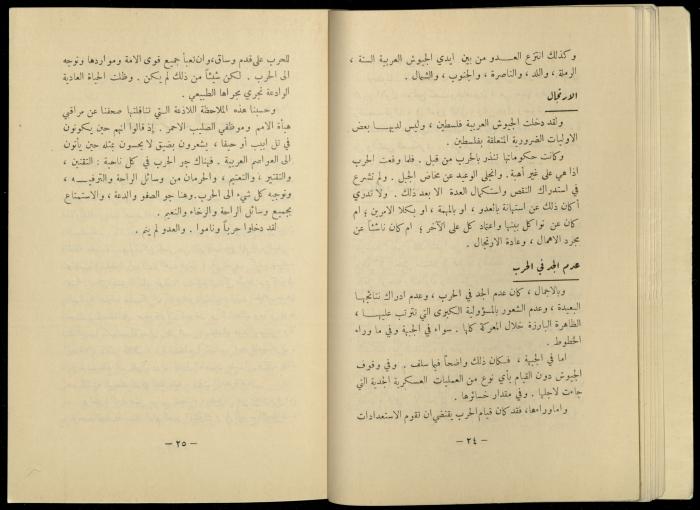 وكذلك انتزع العدو من بين ايدي الجيوش العربية السنة ،
الرملة ، واللد ، والناصرة ، والجنوب ، والشمال .
الارتجال
ولقد دخلت الجيوش العربية فلسطين ، وليس لديها بعض
الاوليات الضرورية المتعلقة بفلسطين .
وكانت حكوماتها تنذر بالحرب من قبل . فلما وقعت الحرب
اذا هي على غير أهبة . وانجلى الوعيد عن مخاض الجبل . ولم تشرع
في استدراك النقص واستكمال العدة الا بعد ذلك . ولا ندري
أكان ذلك عن استهانة بالعدو ، او بالمهمة ، او بكلا الامرين ؛ ام
كان عن تواكل بينها واعتماد كل على الآخر ؛ ام كان ناشئاً عن
مجرد الاهمال ، وعادة الارتجال .
عدم الجد في الحرب
وبالاجمال ، كان عدم الجد في الحرب ، وعدم ادراك نتائجها
البعيدة ، وعدم الشعور بالمسؤولية الكبرى التي تترتب عليها ،
الظاهرة البارزة خلال المعركة كلها . سواء في الجبهة وفي ما وراء
الخطوط .
اما في الجبهة ، فكان ذلك واضحاً فيما سلف . وفي وقوف
الجيوش دون القيام بأي نوع من العمليات العسكرية الجدية التي
جاءت لاجلها . وفي مقدار خسائرها .
واما وراءها، فقد كان قيام الحرب يقتضي ان تقوم الاستعدادات
- ٢٤ -
للحرب على قدم وساق، وان تعبأ جميع قوى الامة ومواردها وتوجه
الى الحرب . لكن شيئاً من ذلك لم يكن . وظلت الحياة العادية
الوادعة تجري مجراها الطبيعي .
وحسبنا هذه الملاحظة اللاذعة التي تناقلتها صحفنا عن مراقبي
هيأة الامم وموظفي الصليب الاحمر . إذ قالوا انهم حين يكونون
في تل ابيب أو حيفا ، يشعرون بضيق لا يحسون بمثله حين يأتون
الى العواصم العربية . فهناك جو الحرب في كل ناحية : التقنين ،
والتقتير ، والتعتيم ، والحرمان من وسائل الراحة والترفيه ،
وتوجيه كل شيء الى الحرب. وهنا جو الصفو والدعة ، والاستمتاع
بجميع وسائل الراحة والرخاء والنعيم .
لقد دخلوا حرباً وناموا . والعدو لم ينم .
- ٢٥ -